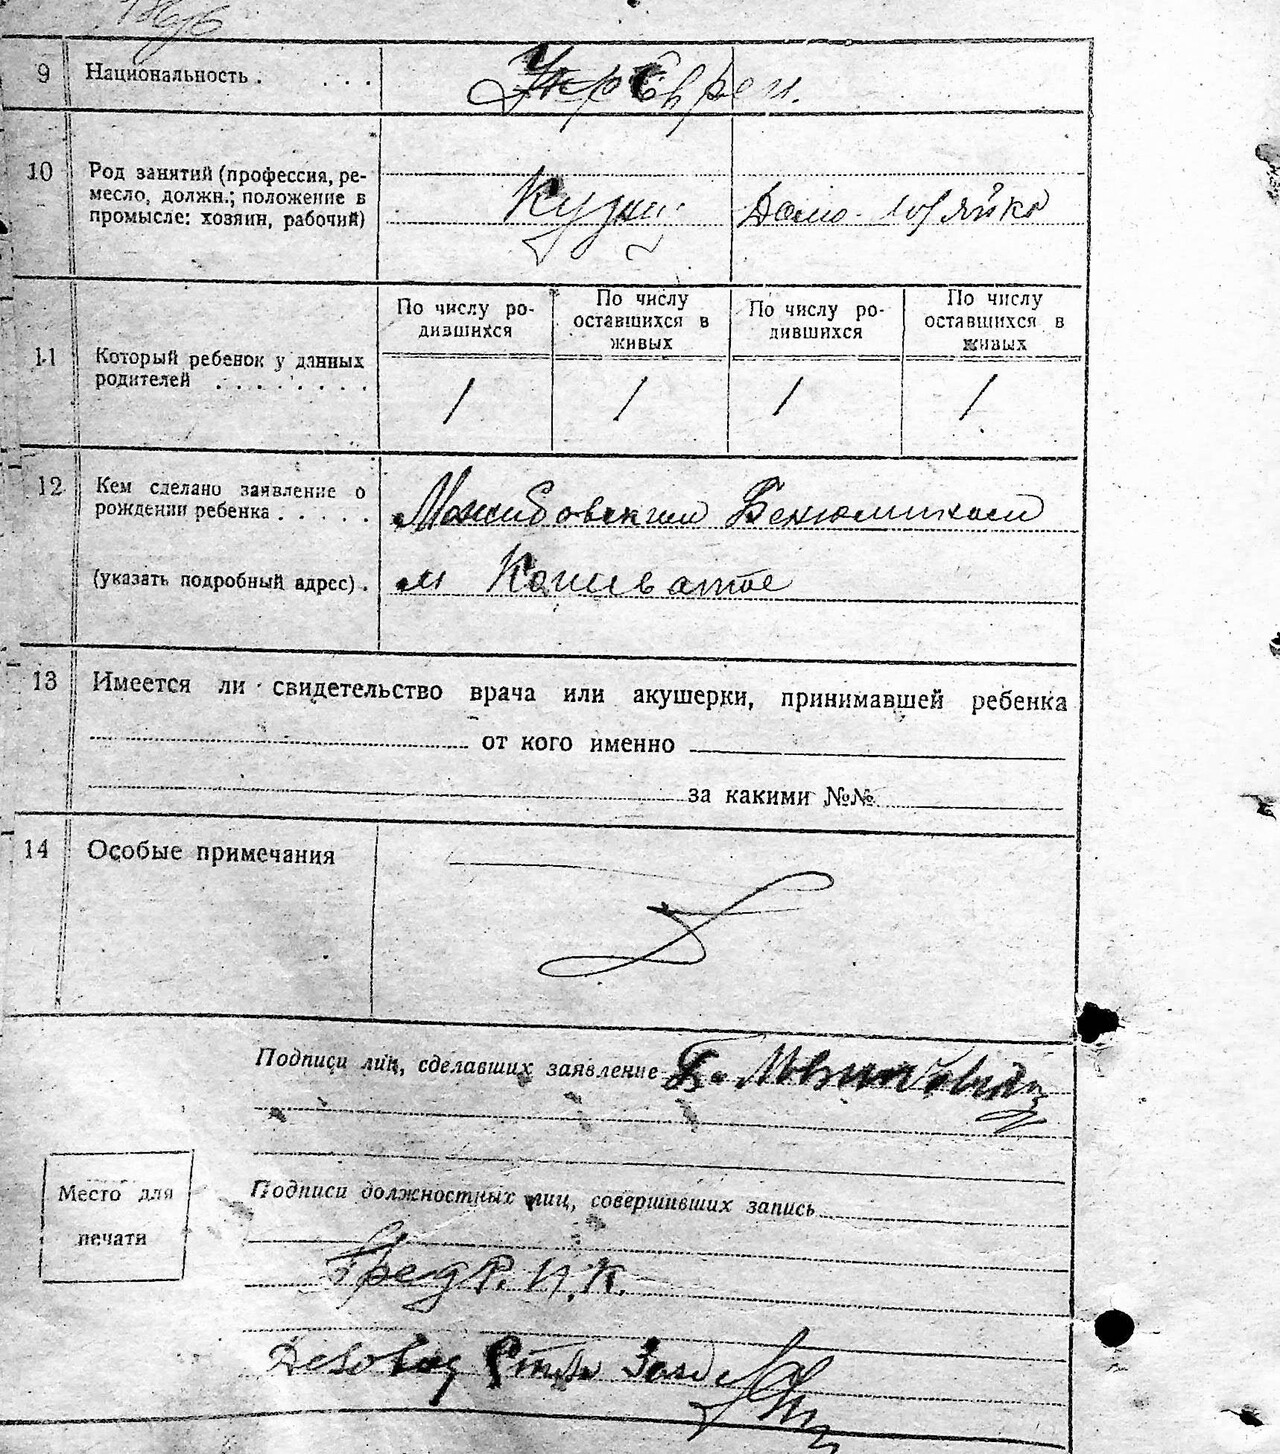 9 Национальность . . . . Еврей.
10 Род занятий (профессия, ре-
месло, должн.; положение в
промысле: хозяин, рабочий)
Домо-хозяйка
По числу ро-
дившихся
По числу
оставшихся в
живых
По числу ро-
дившихся
По числу
оставшихся в
живых
11 Который ребенок у данных
родителей . . . . . . . .
1 1 1 1
12 Кем сделано заявление о
рождении ребенка . . . . .
(указать подробный адрес) .
м
13 Имеется ли свидетельство врача или акушерки, принимавшей ребенка
от кого именно
за какими №№
14 Особые примечания
Подписи лиц, сделавших заявление Б.
Место для
печати
Подписи должностных лиц, совершивших запись
Пред Р.И.К.
Деловод